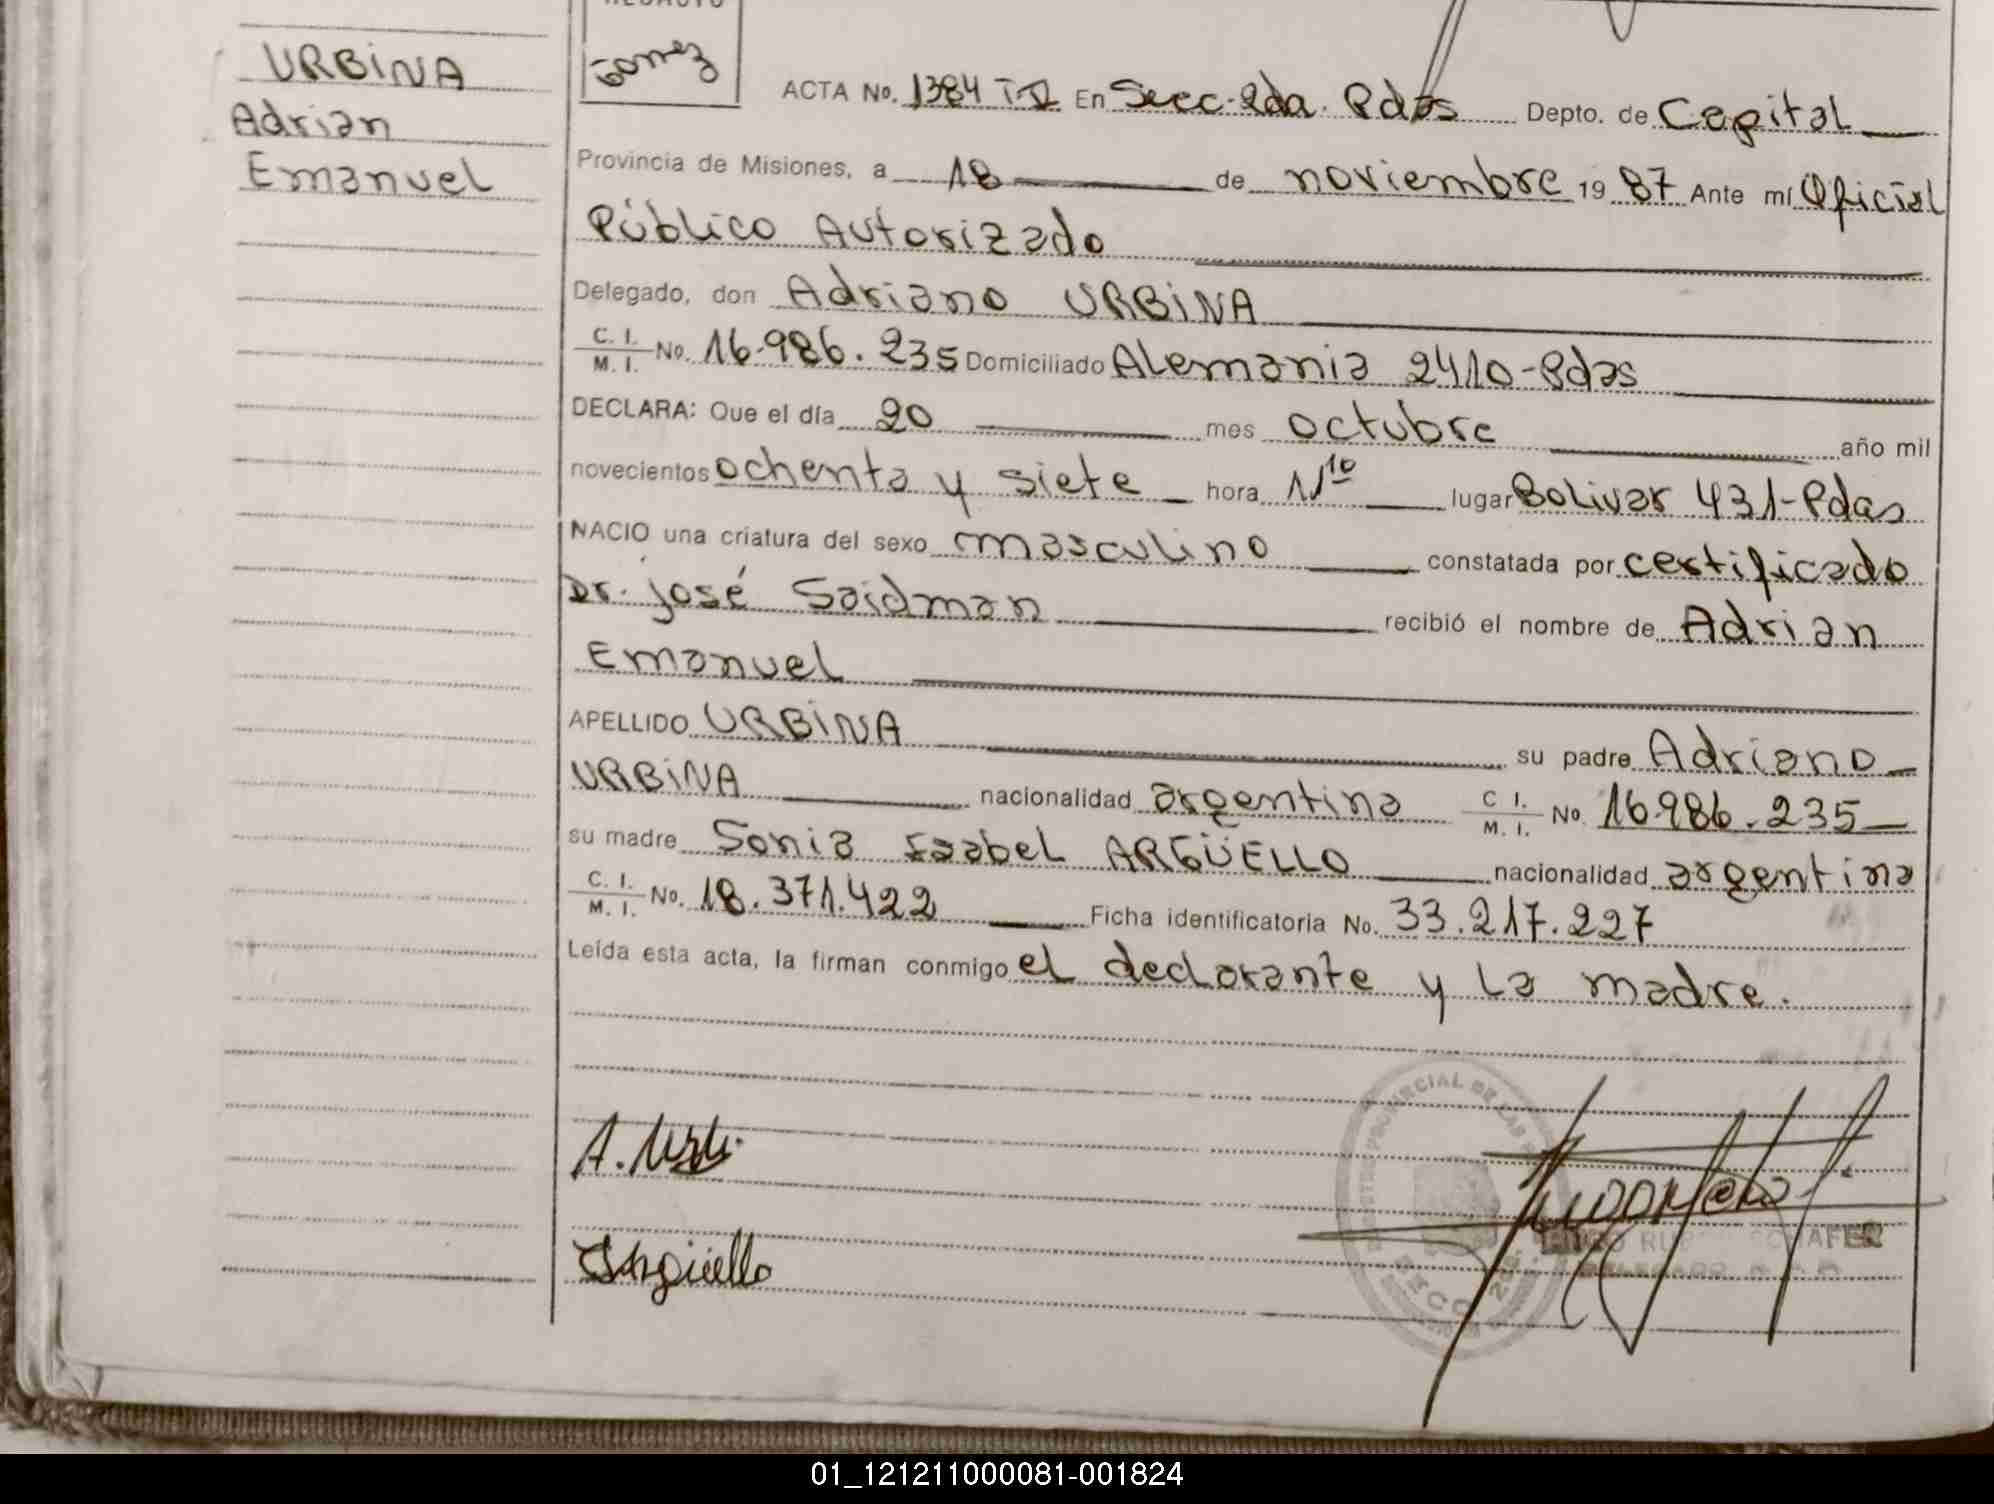 REDACTO
Gomez
URBINA
Adrian
Emanuel
ACTA No. 1384 T-V En Secc. 2da. Pdas Depto. de Capital
Provincia de Misiones, a 18 de noviembre 1987 Ante mí Oficial
Público Autorizado
Delegado, don Adriano URBINA
C. I. / M. I. No. 16.986.235 Domiciliado Alemania 2410-Pdas
DECLARA: Que el día 20 mes octubre año mil
novecientos ochenta y siete hora 11 10 lugar Bolivar 431-Pdas
NACIO una criatura del sexo masculino constatada por certificado
Dr. José Saidman recibió el nombre de Adrian
Emanuel
APELLIDO URBINA su padre Adriano
URBINA nacionalidad argentina C I. / M. I. No. 16.986.235
su madre Sonia Isabel ARGÜELLO nacionalidad argentina
C. I. / M. I. No. 18.371.422 Ficha identificatoria No. 33.217.227
Leída esta acta, la firman conmigo el declarante y la madre.
PROVINCIAL DE LAS
SECC. 2a.
SCHAFER
Argüello
01_121211000081-001824